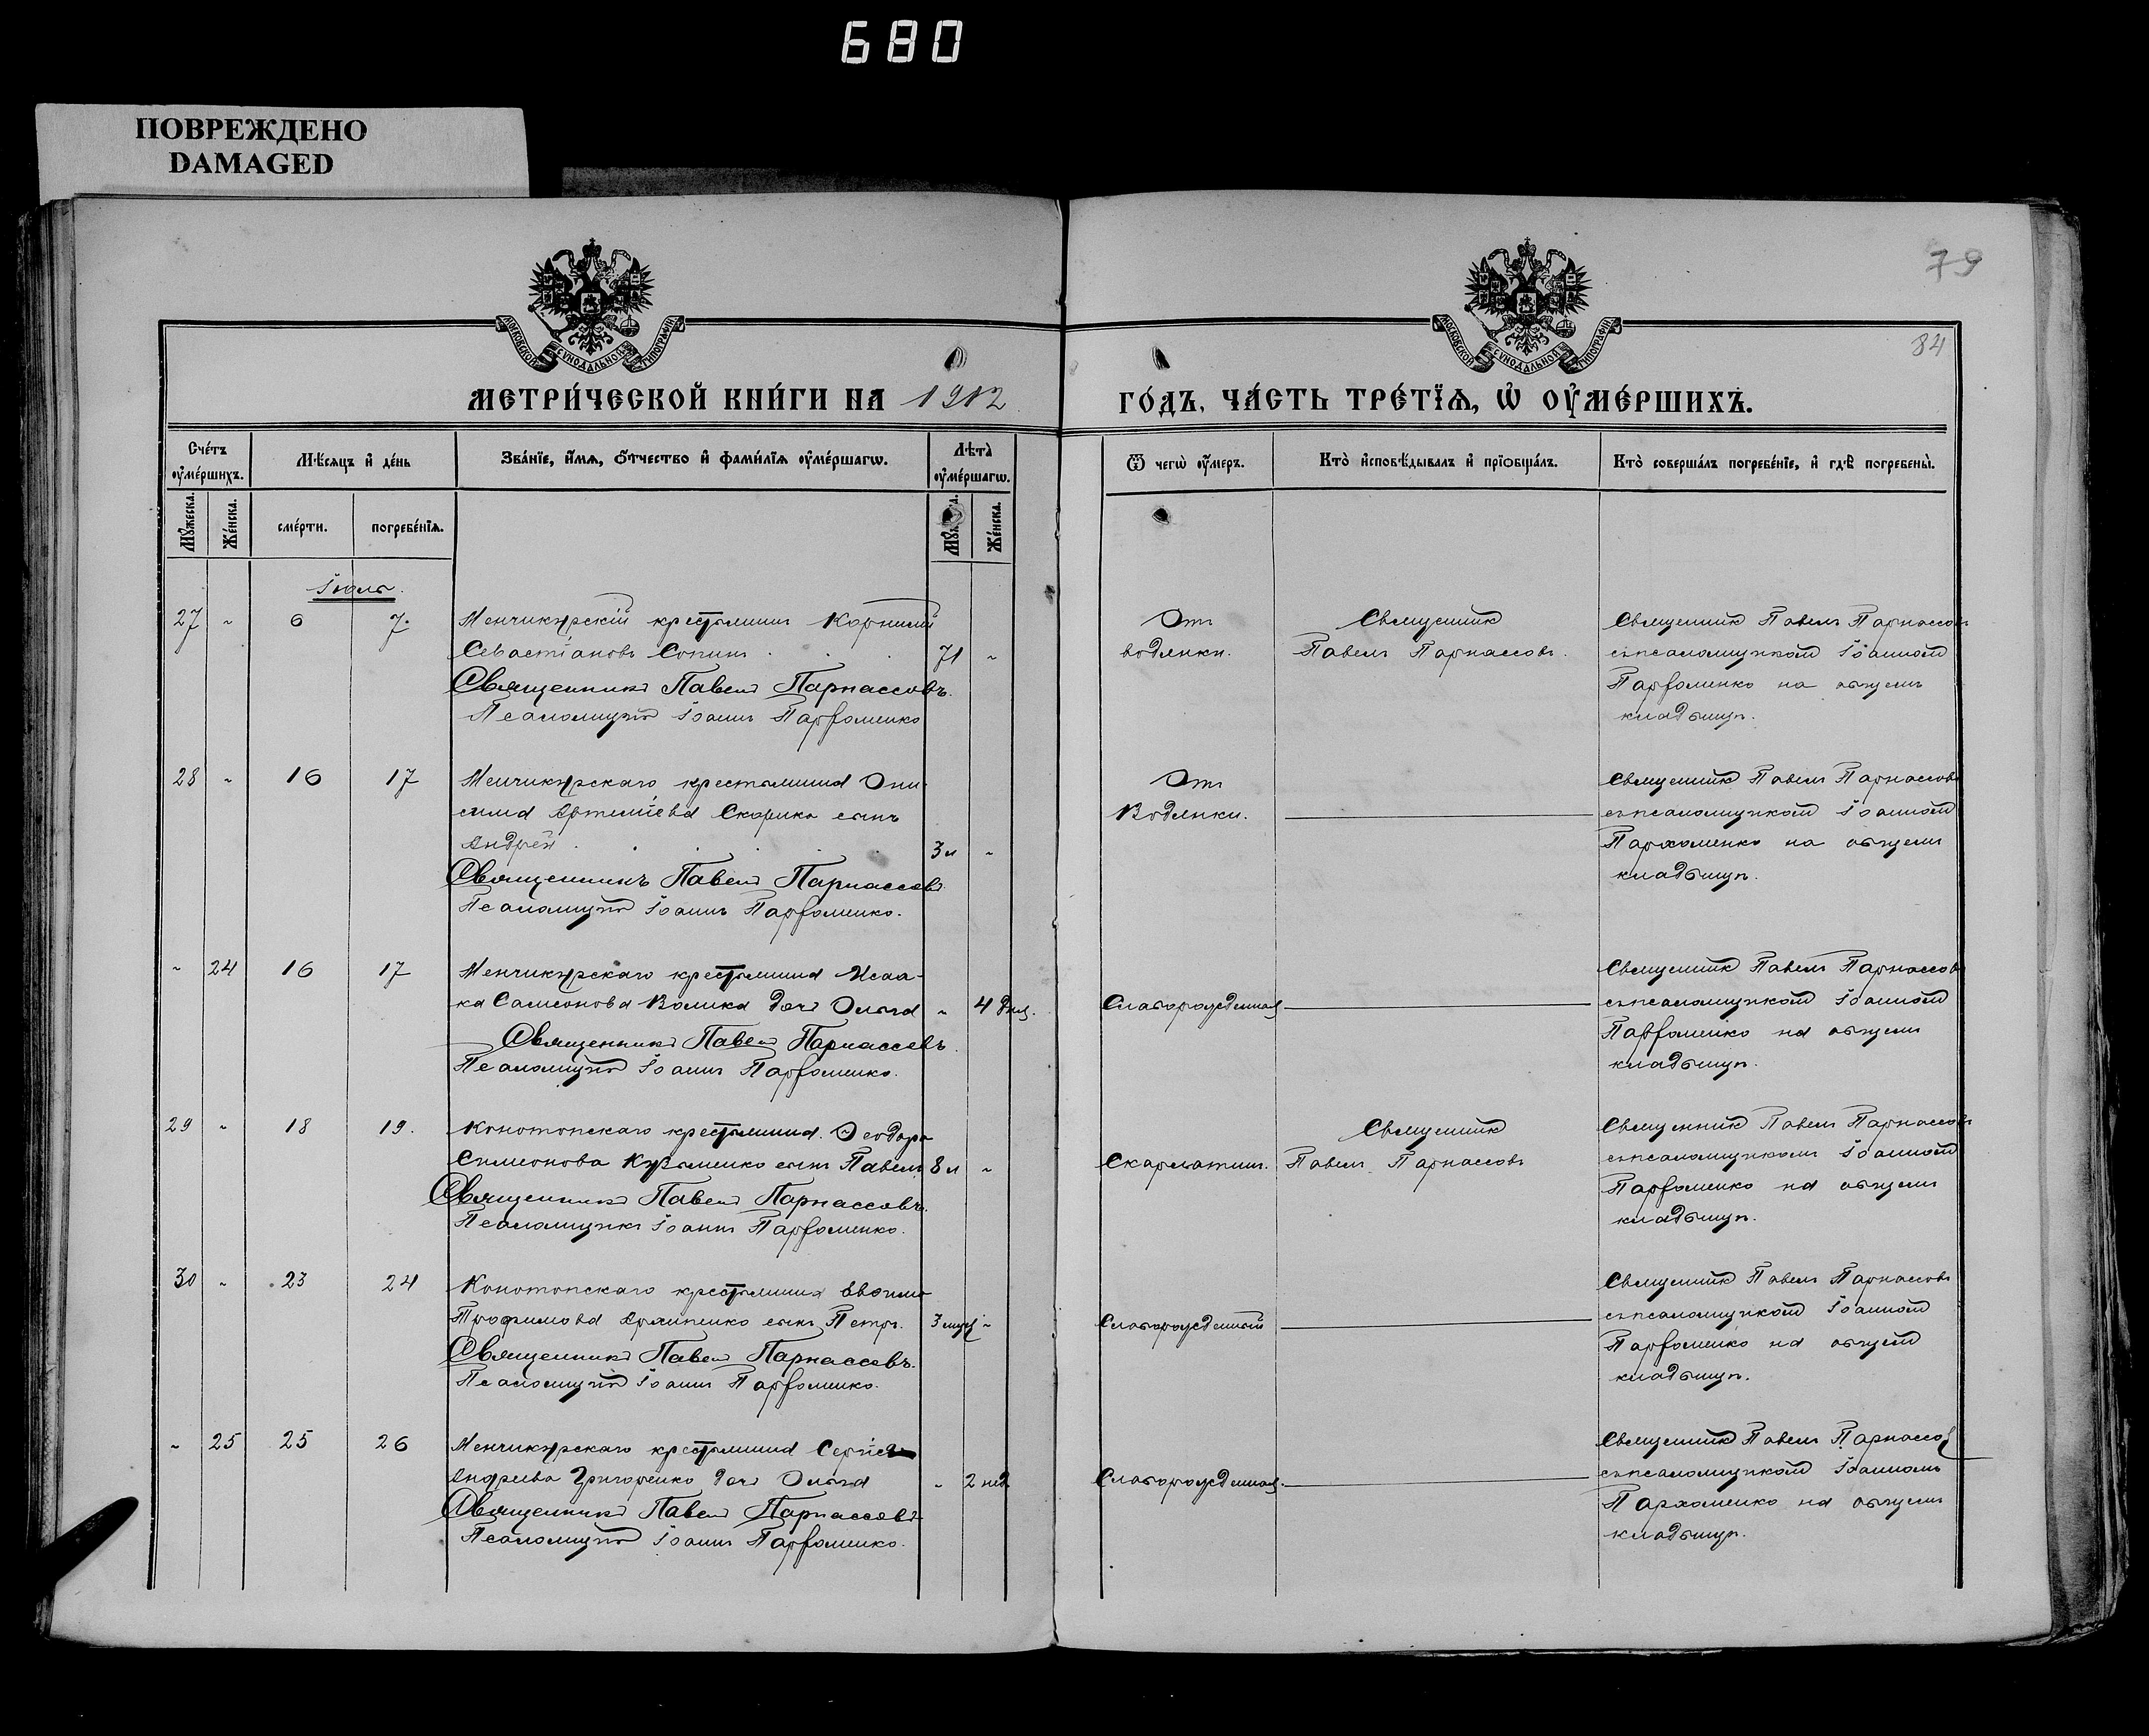 680
ПОВРЕЖДЕНО
DAMAGED
79
84
МОСКОВСКОЙ СѴНОДАЛЬНОЙ ТИПОГРАФІИ
МОСКОВСКОЙ СѴНОДАЛЬНОЙ ТИПОГРАФІИ
МЕТРИ́ЧЕСКОЙ КНИ́ГИ НА 1912
ГО́ДЪ, ЧА́СТЬ ТРЕ́ТІѦ, Ѡ҆ ОУ҆МЕ́РШИХЪ.
Сче́тъ оу҆ме́ршихъ.
Мѣ́сяцъ и҆ де́нь
Зва́нїе, и҆́мѧ, ѻ҆́тчество и҆ фами́лїѧ оу҆ме́ршагѡ.
Лѣ̀та оу҆ме́ршагѡ.
Ѿ чегѡ̀ оу҆́меръ.
Кто̀ и҆сповѣ́дывалъ и҆ прїѻбща́лъ.
Кто̀ соверша́лъ погребе́нїе, и҆ гдѣ̀ погребены̀.
Мꙋ́жеска.
Же́нска.
сме́рти.
погребе́нїѧ.
Же́нска.
Іюль.
27 " 6 7. Менчикурскій крестьянинъ Корнилій
Севастіановъ Сопинъ . . . 71 "
Священникъ Павелъ Парнассовъ.
Псаломщикъ Іоаннъ Парфоменко
Отъ
водянки.
Священникъ
Павелъ Парнассовъ.
Священникъ Павелъ Парнассовъ
съ псаломщикомъ Іоанномъ
Парфоменко на общемъ
кладбищѣ.
28 " 16 17 Менчикурскаго крестьянина Они-
сима Артеміева Скорика сынъ
Андрей . . . . . 3 л "
Священникъ Павелъ Парнассовъ.
Псаломщикъ Іоаннъ Парфоменко.
Отъ
Водянки.
Священникъ Павелъ Парнассовъ
съ псаломщикомъ Іоанномъ
Пархоменко на общемъ
кладбищѣ.
" 24 16 17 Менчикурскаго крестьянина Исаа-
ка Самсонова Волика дочь Ольга " 4 дня.
Священникъ Павелъ Парнассовъ.
Псаломщикъ Іоаннъ Парфоменко.
Слаборожденная
Священникъ Павелъ Парнассовъ
съ псаломщикомъ Іоанномъ
Парфоменко на общемъ
кладбищѣ.
29 " 18 19. Конотопскаго крестьянина Ѳеодора
Симеонова Кузьменко сынъ Павелъ 8 л "
Священникъ Павелъ Парнассовъ.
Псаломщикъ Іоаннъ Парфоменко.
Скарлатин.
Священникъ
Павелъ Парнассовъ
Священникъ Павелъ Парнассовъ
съ псаломщикомъ Іоанномъ
Парфоменко на общемъ
кладбищѣ.
30 " 23 24 Конотопскаго крестьянина
Трофимова Архипенко сынъ Петръ. "
Священникъ Павелъ Парнассовъ.
Псаломщикъ Іоаннъ Парфоменко.
Слаборожденный
Священникъ Павелъ Парнассовъ
съ псаломщикомъ Іоанномъ
Парфоменко на общемъ
кладбищѣ.
" 25 25 26 Менчикурскаго крестьянина Сергія
Андреева Григоренко дочь Ольга " 2 нед.
Священникъ Павелъ Парнассовъ
Псаломщикъ Іоаннъ Парфоменко.
Слаборожденная.
Священникъ Павелъ Парнассов
съ псаломщикомъ Іоанномъ
Пархоменко на общемъ
кладбищѣ.